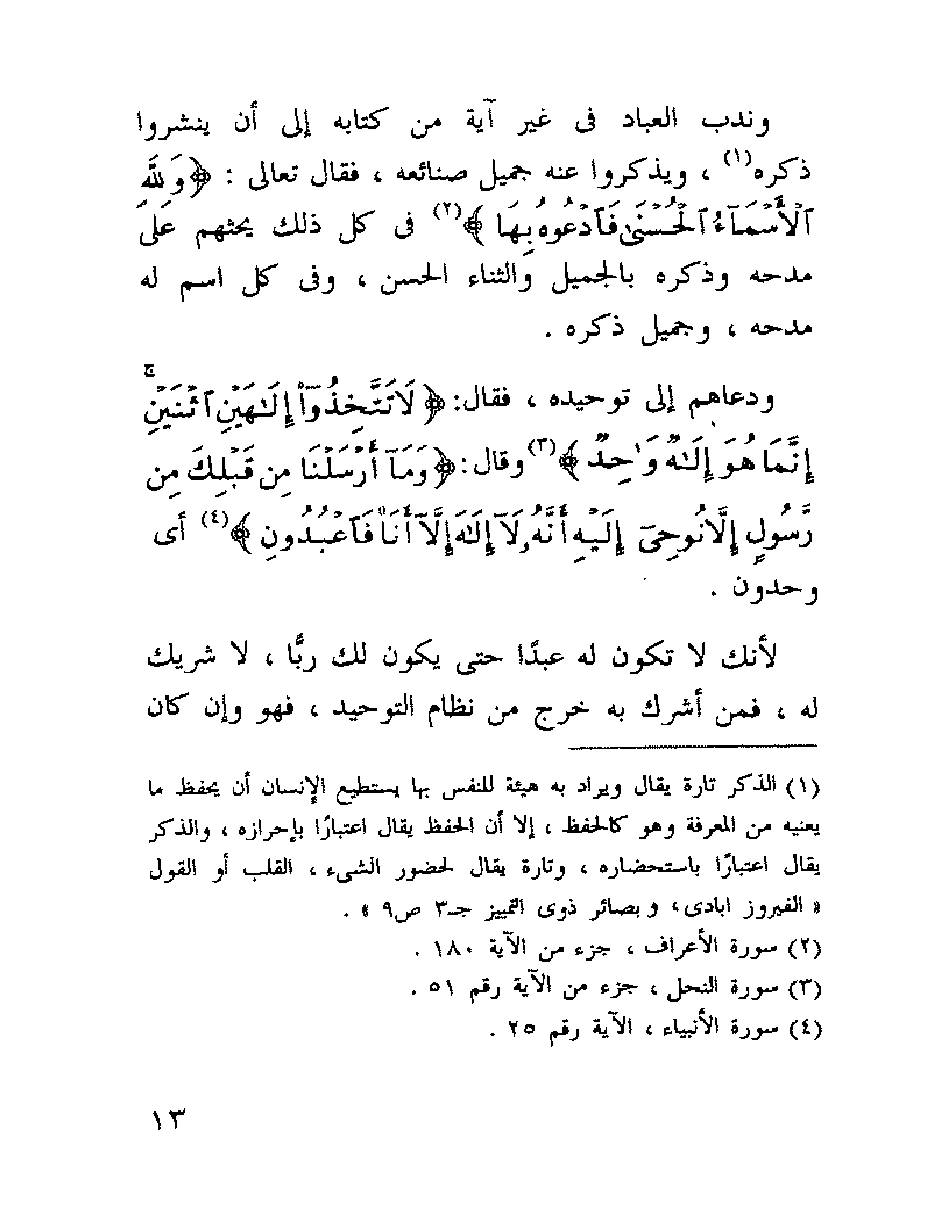 وندب العباد فى غير آية من كتابه إلى أن ينشروا
ذكره(١) ، ويذكروا عنه جميل صنائعه ، فقال تعالى : ﴿وَلِلَّهِ
ٱلْأَسْمَآءُ ٱلْحُسْنَىٰ فَٱدْعُوهُ بِهَا ﴾(٢) فى كل ذلك يحثهم عَلَى
مدحه وذكره بالجميل والثناء الحسن ، وفى كل اسم له
مدحه ، وجميل ذكره .
ودعاهم إلى توحيده ، فقال: ﴿ لَا تَتَّخِذُوٓا۟ إِلَـٰهَيْنِ ٱثْنَيْنِ ۖ
إِنَّمَا هُوَ إِلَـٰهٌ وَٰحِدٌ ﴾(٣) وقال : ﴿ وَمَآ أَرْسَلْنَا مِن قَبْلِكَ مِن
رَّسُولٍ إِلَّا نُوحِىٓ إِلَيْهِ أَنَّهُۥ لَآ إِلَـٰهَ إِلَّآ أَنَا۠ فَٱعْبُدُونِ ﴾(٤) أى
وحدون .
لأنك لا تكون له عبدًا حتى يكون لك ربًّا ، لا شريك
له ، فمن أشرك به خرج من نظام التوحيد ، فهو وإن كان
(١) الذكر تارة يقال ويراد به هيئة للنفس بها يستطيع الإنسان أن يحفظ ما
يعنيه من المعرفة وهو كالحفظ ، إلا أن الحفظ يقال اعتبارًا بإحرازه ، والذكر
يقال اعتبارًا باستحضاره ، وتارة يقال لحضور الشىء ، القلب أو القول
« الفيروز ابادى ، و بصائر ذوى التمييز جـ٣ ص٩ » .
(٢) سورة الأعراف ، جزء من الآية ١٨٠ .
(٣) سورة النحل ، جزء من الآية رقم ٥١ .
(٤) سورة الأنبياء ، الآية رقم ٢٥ .
١٣